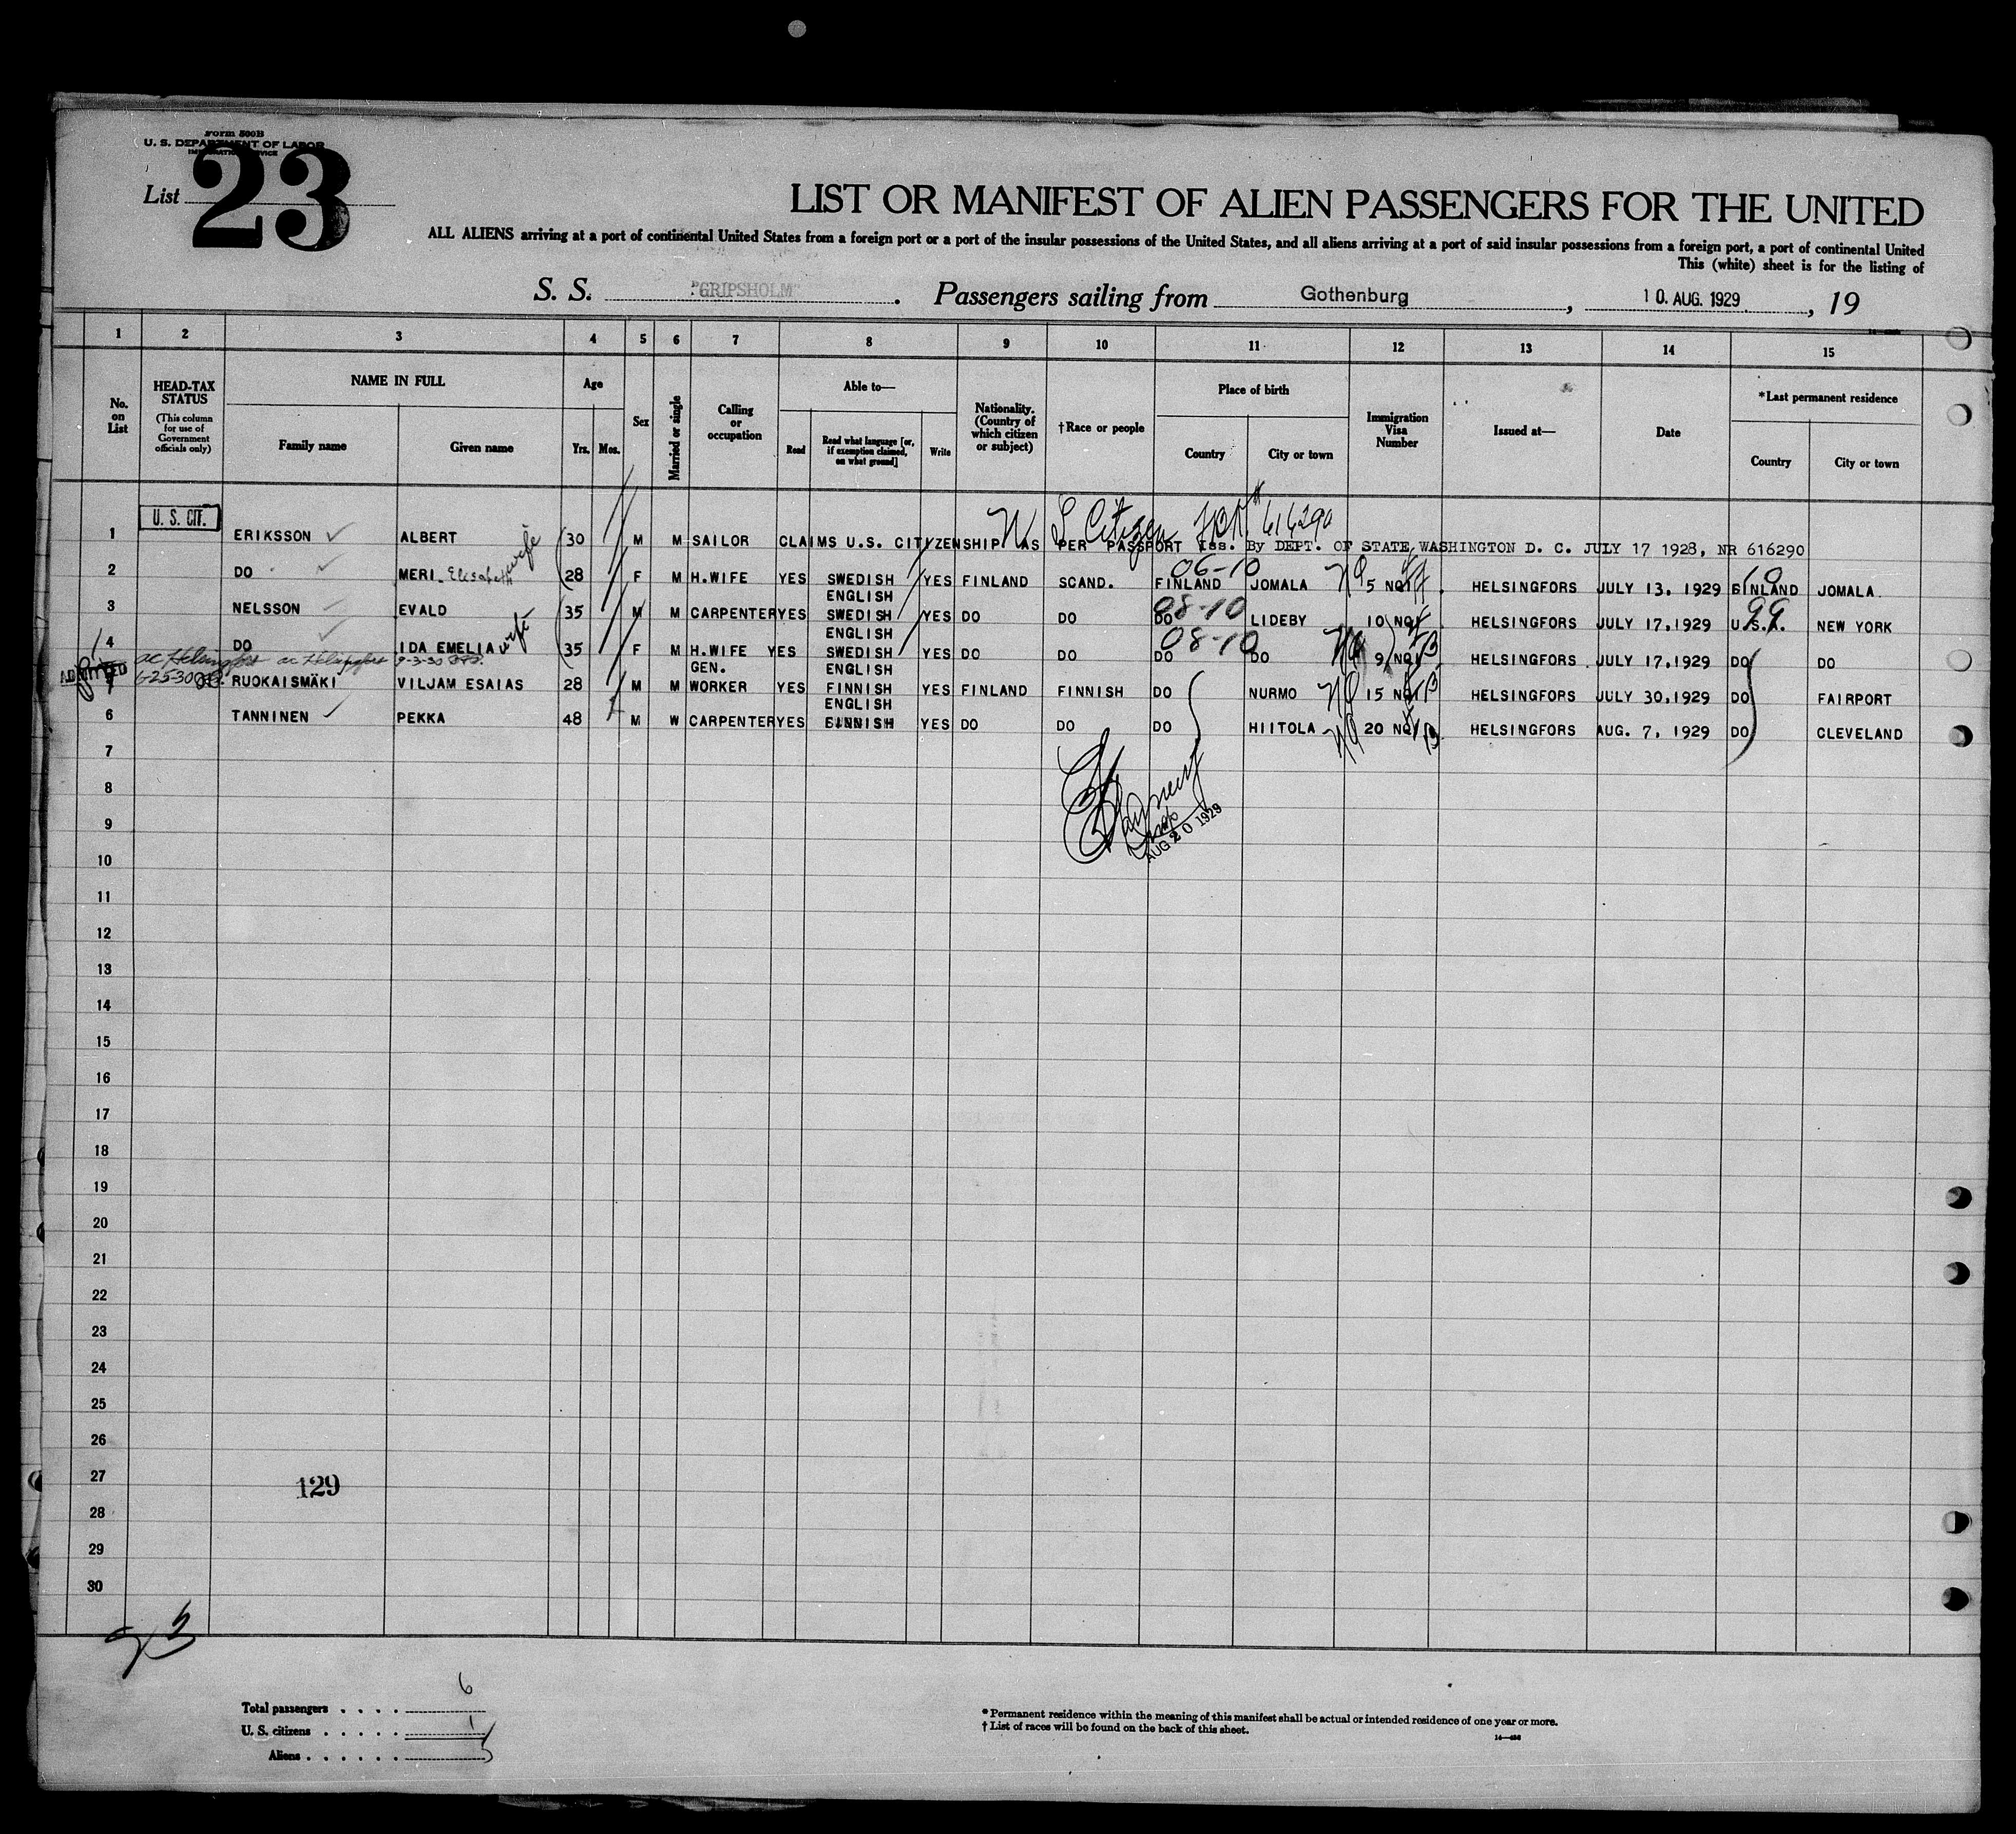 Form 500B
U. S. DEPARTMENT OF LABOR
IMMIGRATION SERVICE
List 23
LIST OR MANIFEST OF ALIEN PASSENGERS FOR THE UNITED
ALL ALIENS arriving at a port of continental United States from a foreign port or a port of the insular possessions of the United States, and all aliens arriving at a port of said insular possessions from a foreign port, a port of continental United
This (white) sheet is for the listing of
S. S. "GRIPSHOLM". Passengers sailing from Gothenburg, 10. AUG. 1929, 19
1 2 3 4 5 6 7 8 9 10 11 12 13 14 15
No. on List
HEAD-TAX STATUS (This column for use of Government officials only)
NAME IN FULL
Family name Given name
Age
Yrs. Mos.
Sex
Married or single
Calling or occupation
Able to—
Read Read what language [or, if exemption claimed, on what ground] Write
Nationality. (Country of which citizen or subject)
†Race or people
Place of birth
Country City or town
Immigration Visa Number
Issued at—
Date
*Last permanent residence
Country City or town
U S Citizen 616290
1 U. S. CIT. ERIKSSON ALBERT wife 30 M M SAILOR CLAIMS U.S. CITYZENSHIP AS PER PASSPORT Iss. By DEPT. OF STATE, WASHINGTON D. C. JULY 17 1928, NR 616290
06-10
2 DO MERI Elisabeth 28 F M H.WIFE YES SWEDISH YES FINLAND SCAND. FINLAND JOMALA 5 NQ HELSINGFORS JULY 13, 1929 FINLAND JOMALA
ENGLISH 08-10 99
3 NELSSON EVALD 35 M M CARPENTER YES SWEDISH YES DO DO DO LIDEBY 10 NQ HELSINGFORS JULY 17,1929 U.S.A. NEW YORK
ENGLISH 08-10
4 DO IDA EMELIA wife 35 F M H.WIFE YES SWEDISH YES DO DO DO DO 9 NQ HELSINGFORS JULY 17,1929 DO DO
ac Helsingfors ac Helsingfors 9-3-30
ADMITTED 6-25-30
GEN. ENGLISH
RUOKAISMÄKI VILJAM ESAIAS 28 M M WORKER YES FINNISH YES FINLAND FINNISH DO NURMO 15 NQ HELSINGFORS JULY 30,1929 DO FAIRPORT
ENGLISH
6 TANNINEN PEKKA 48 M W CARPENTER YES FINNISH YES DO DO DO HIITOLA 20 NQ HELSINGFORS AUG. 7, 1929 DO CLEVELAND
7
8
9
AUG 20 1929
10
11
12
13
14
15
16
17
18
19
20
21
22
23
24
25
26
27
129
28
29
30
Total passengers . . . . 6
U. S. citizens . . . . . 1
Aliens . . . . . . 5
* Permanent residence within the meaning of this manifest shall be actual or intended residence of one year or more.
† List of races will be found on the back of this sheet.